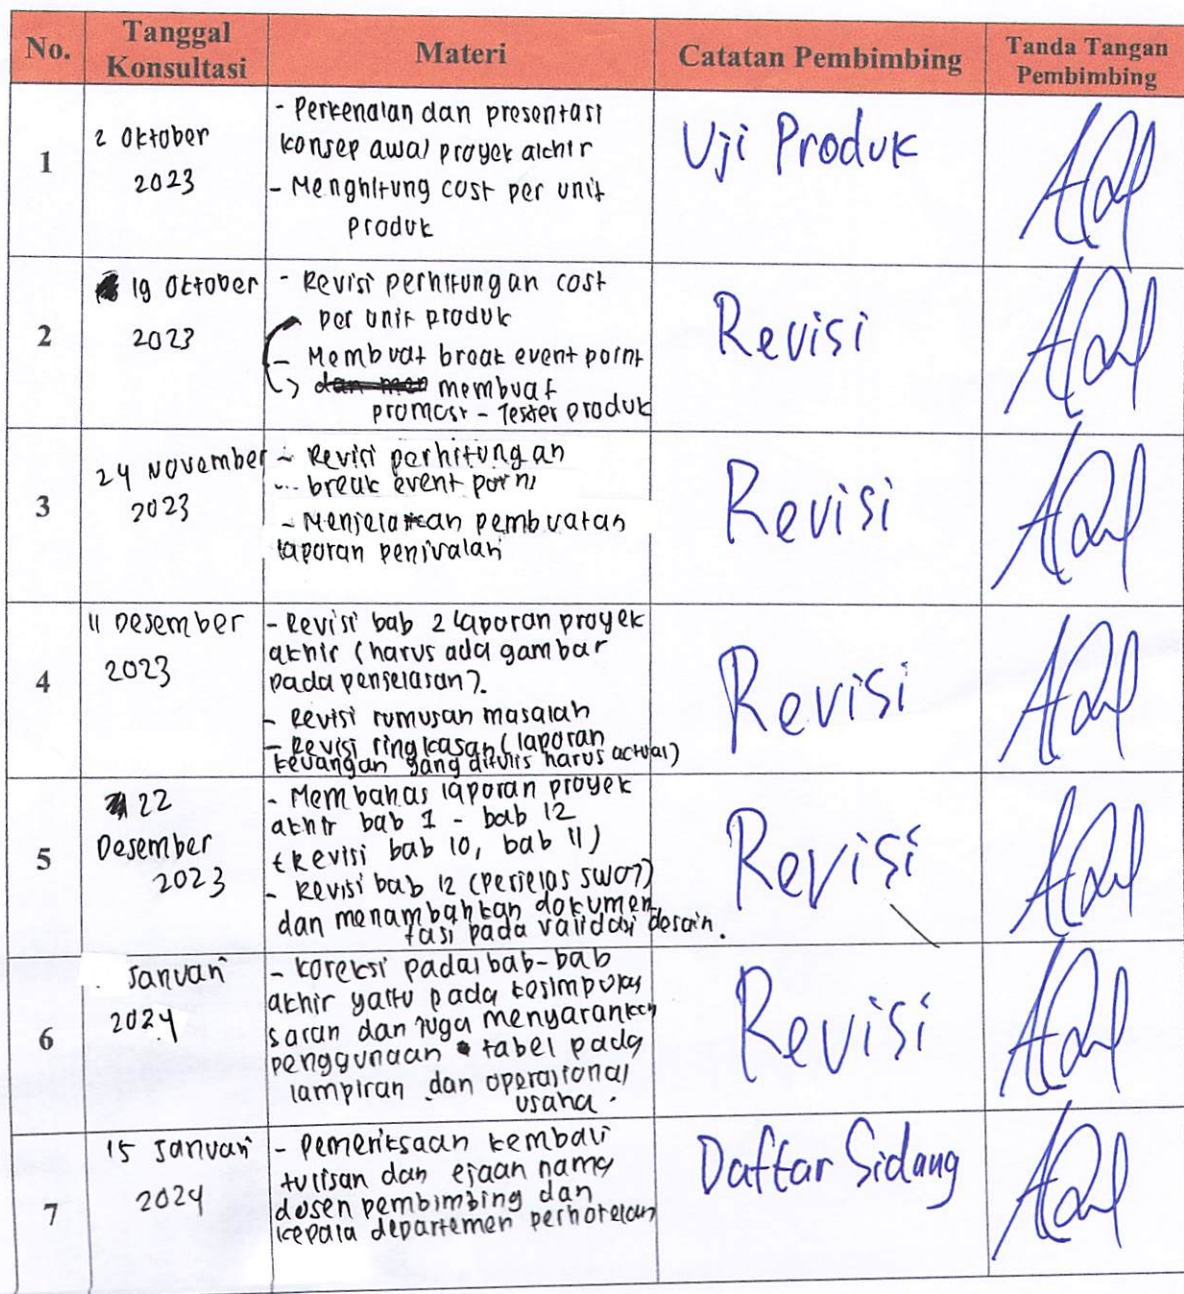 No.
Tanggal
Konsultasi
Materi
Catatan Pembimbing
Tanda Tangan
Pembimbing
1
2 Oktober
2023
- Perkenalan dan presentasi
konsep awal proyek akhir
- Menghitung cost per unit
produk
Uji Produk
2
19 Oktober
2023
- Revisi perhitungan cost
per unit produk
- Membuat break event point
membuat
promosi - Tester produk
Revisi
3
24 November
2023
- Revisi perhitungan
break event point
- Menjelaskan pembuatan
laporan penjualan
Revisi
4
11 Desember
2023
- Revisi bab 2 laporan proyek
akhir (harus ada gambar
pada penjelasan).
- Revisi rumusan masalah
- Revisi ringkasan (laporan
keuangan yang ditulis harus actual)
Revisi
5
22
Desember
2023
- Membahas laporan proyek
akhir bab 1 - bab 12
(Revisi bab 10, bab 11)
- Revisi bab 12 (Perjelas SWOT)
dan menambahkan dokumen
tasi pada validasi desain.
Revisi
6
Januari
2024
- Koreksi pada bab-bab
akhir yaitu pada kesimpulan
saran dan juga menyarankan
penggunaan tabel pada
lampiran dan operasional
usaha.
Revisi
7
15 Januari
2024
- Pemeriksaan kembali
tulisan dan ejaan nama
dosen pembimbing dan
kepala departemen perhotelan
Daftar Sidang